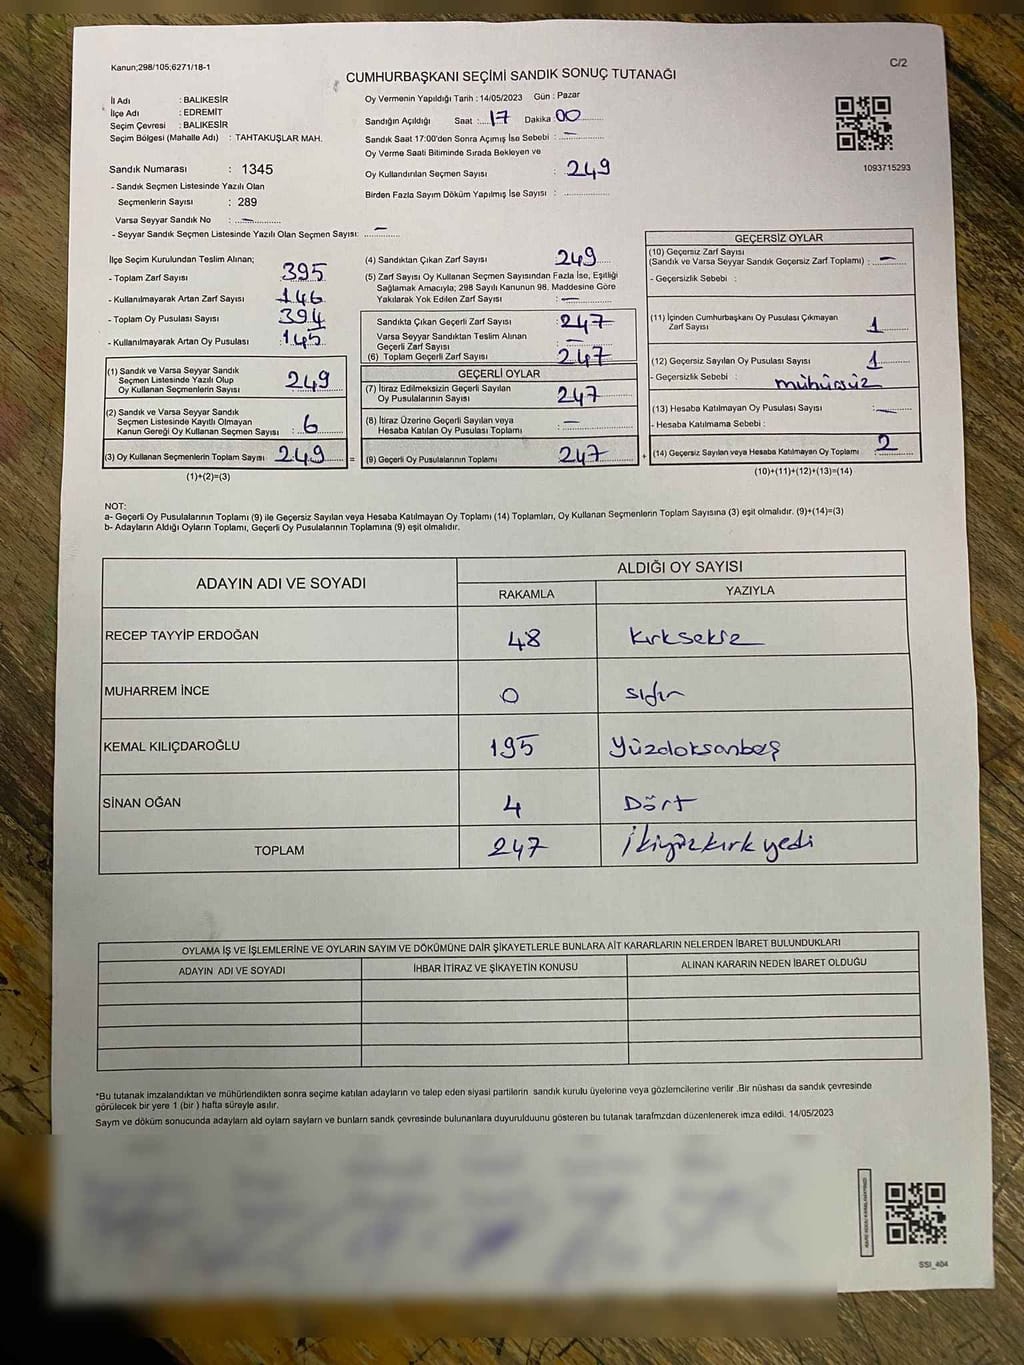 Kanun;298/105;6271/18-1
C/2
CUMHURBAŞKANI SEÇİMİ SANDIK SONUÇ TUTANAĞI
İl Adı : BALIKESİR
İlçe Adı : EDREMİT
Seçim Çevresi : BALIKESİR
Seçim Bölgesi (Mahalle Adı) : TAHTAKUŞLAR MAH.
Sandık Numarası : 1345
- Sandık Seçmen Listesinde Yazılı Olan
Seçmenlerin Sayısı : 289
Varsa Seyyar Sandık No : —
- Seyyar Sandık Seçmen Listesinde Yazılı Olan Seçmen Sayısı: —
Oy Vermenin Yapıldığı Tarih : 14/05/2023 Gün : Pazar
Sandığın Açıldığı Saat : 17 Dakika 00
Sandık Saat 17:00'den Sonra Açımış İse Sebebi : —
Oy Verme Saati Bitiminde Sırada Bekleyen ve
Oy Kullandırılan Seçmen Sayısı : 249
Birden Fazla Sayım Döküm Yapılmış İse Sayısı :
1093715293
İlçe Seçim Kurulundan Teslim Alınan;
- Toplam Zarf Sayısı : 395
- Kullanılmayarak Artan Zarf Sayısı : 146
- Toplam Oy Pusulası Sayısı : 394
- Kullanılmayarak Artan Oy Pusulası : 145
(1) Sandık ve Varsa Seyyar Sandık
Seçmen Listesinde Yazılı Olup
Oy Kullanan Seçmenlerin Sayısı : 249
(2) Sandık ve Varsa Seyyar Sandık
Seçmen Listesinde Kayıtlı Olmayan
Kanun Gereği Oy Kullanan Seçmen Sayısı : 6
(3) Oy Kullanan Seçmenlerin Toplam Sayısı 249
(1)+(2)=(3)
(4) Sandıktan Çıkan Zarf Sayısı : 249
(5) Zarf Sayısı Oy Kullanan Seçmen Sayısından Fazla İse, Eşitliği
Sağlamak Amacıyla; 298 Sayılı Kanunun 98. Maddesine Göre
Yakılarak Yok Edilen Zarf Sayısı : —
Sandıkta Çıkan Geçerli Zarf Sayısı : 247
Varsa Seyyar Sandıktan Teslim Alınan
Geçerli Zarf Sayısı : —
(6) Toplam Geçerli Zarf Sayısı : 247
GEÇERLİ OYLAR
(7) İtiraz Edilmeksizin Geçerli Sayılan
Oy Pusulalarının Sayısı : 247
(8) İtiraz Üzerine Geçerli Sayılan veya
Hesaba Katılan Oy Pusulası Toplamı : —
(9) Geçerli Oy Pusulalarının Toplamı : 247
GEÇERSİZ OYLAR
(10) Geçersiz Zarf Sayısı
(Sandık ve Varsa Seyyar Sandık Geçersiz Zarf Toplamı) : —
- Geçersizlik Sebebi :
(11) İçinden Cumhurbaşkanı Oy Pusulası Çıkmayan
Zarf Sayısı : 1
(12) Geçersiz Sayılan Oy Pusulası Sayısı : 1
- Geçersizlik Sebebi : mühürsüz
(13) Hesaba Katılmayan Oy Pusulası Sayısı : —
- Hesaba Katılmama Sebebi :
(14) Geçersiz Sayılan veya Hesaba Katılmayan Oy Toplamı : 2
(10)+(11)+(12)+(13)=(14)
NOT:
a- Geçerli Oy Pusulalarının Toplamı (9) ile Geçersiz Sayılan veya Hesaba Katılmayan Oy Toplamı (14) Toplamları, Oy Kullanan Seçmenlerin Toplam Sayısına (3) eşit olmalıdır. (9)+(14)=(3)
b- Adayların Aldığı Oyların Toplamı, Geçerli Oy Pusulalarının Toplamına (9) eşit olmalıdır.
ADAYIN ADI VE SOYADI ALDIĞI OY SAYISI
RAKAMLA YAZIYLA
RECEP TAYYİP ERDOĞAN 48 Kırksekiz
MUHARREM İNCE 0 sıfır
KEMAL KILIÇDAROĞLU 195 Yüzdoksanbeş
SİNAN OĞAN 4 Dört
TOPLAM 247 İkiyüzkırkyedi
OYLAMA İŞ VE İŞLEMLERİNE VE OYLARIN SAYIM VE DÖKÜMÜNE DAİR ŞİKAYETLERLE BUNLARA AİT KARARLARIN NELERDEN İBARET BULUNDUKLARI
ADAYIN ADI VE SOYADI İHBAR İTİRAZ VE ŞİKAYETİN KONUSU ALINAN KARARIN NEDEN İBARET OLDUĞU
*Bu tutanak imzalandıktan ve mühürlendikten sonra seçime katılan adayların ve talep eden siyasi partilerin sandık kurulu üyelerine veya gözlemcilerine verilir .Bir nüshası da sandık çevresinde
görülecek bir yere 1 (bir ) hafta süreyle asılır.
Saym ve döküm sonucunda adaylarn ald oylarn saylarn ve bunlarn sandk çevresinde bulunanlara duyurulduunu gösteren bu tutanak tarafmzdan düzenlenerek imza edildi. 14/05/2023
SSI_404